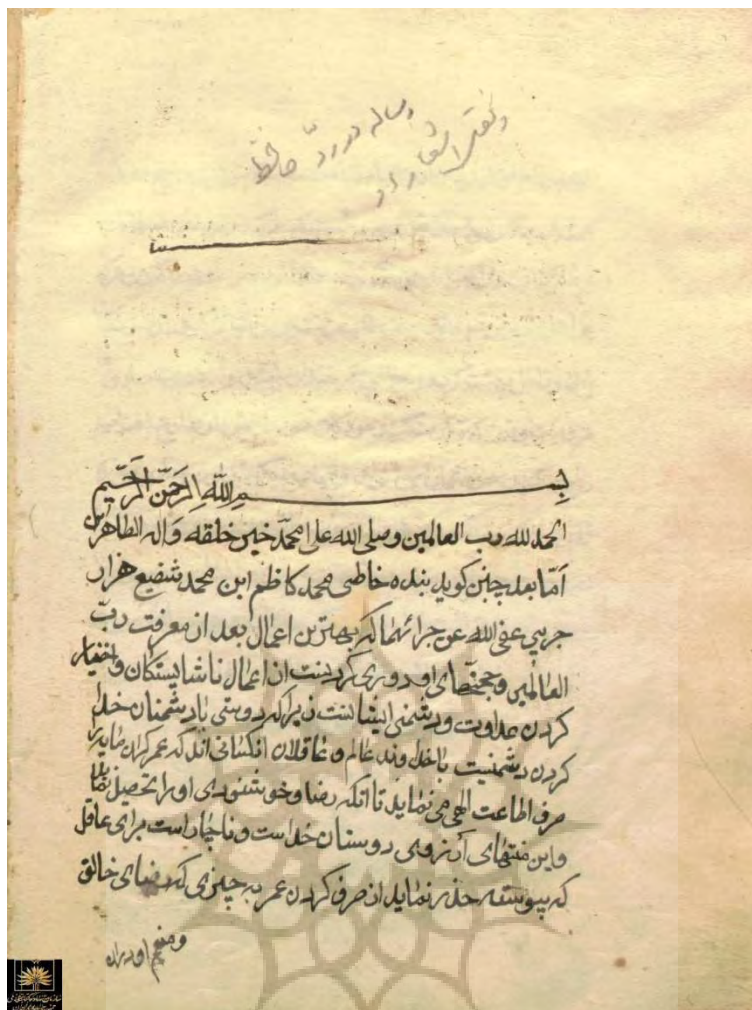 رساله در ردّ حافظ
و نقل اشعار او
بِسْمِ اللّهِ الرَّحمنِ الرَّحیم
الحمد لله رب العالمین وصلی الله علی محمّد خیر خلقه وَاله الطاهرین
اَمّا بعد چنین کوید بنده خاطی محمد کاظم ابن محمد شفیع هزار
جریبی عفی الله عن جرائمهما که بهترین اعمال بعد از معرفت ربّ
العالمین وحجتهای او دوری کردنست از اعمال ناشایستکان واختیار
کردن عداوت ودشمنی ایشانست زیرا که دوستی با دشمنان خدا
کردن دشمنیست با خداوند عالم وعاقلان انکسانی اند که عمر کران مایه را
صرف اطاعت الهی می نماید تا انکه رضا وخوشنودی او را تحصیل نماید
واین منتهای آرزوی دوستان خداست وناچار است برای عاقل
که پیوسته حذر نماید از صرف کردن عمر به چیزی که رضای خالق